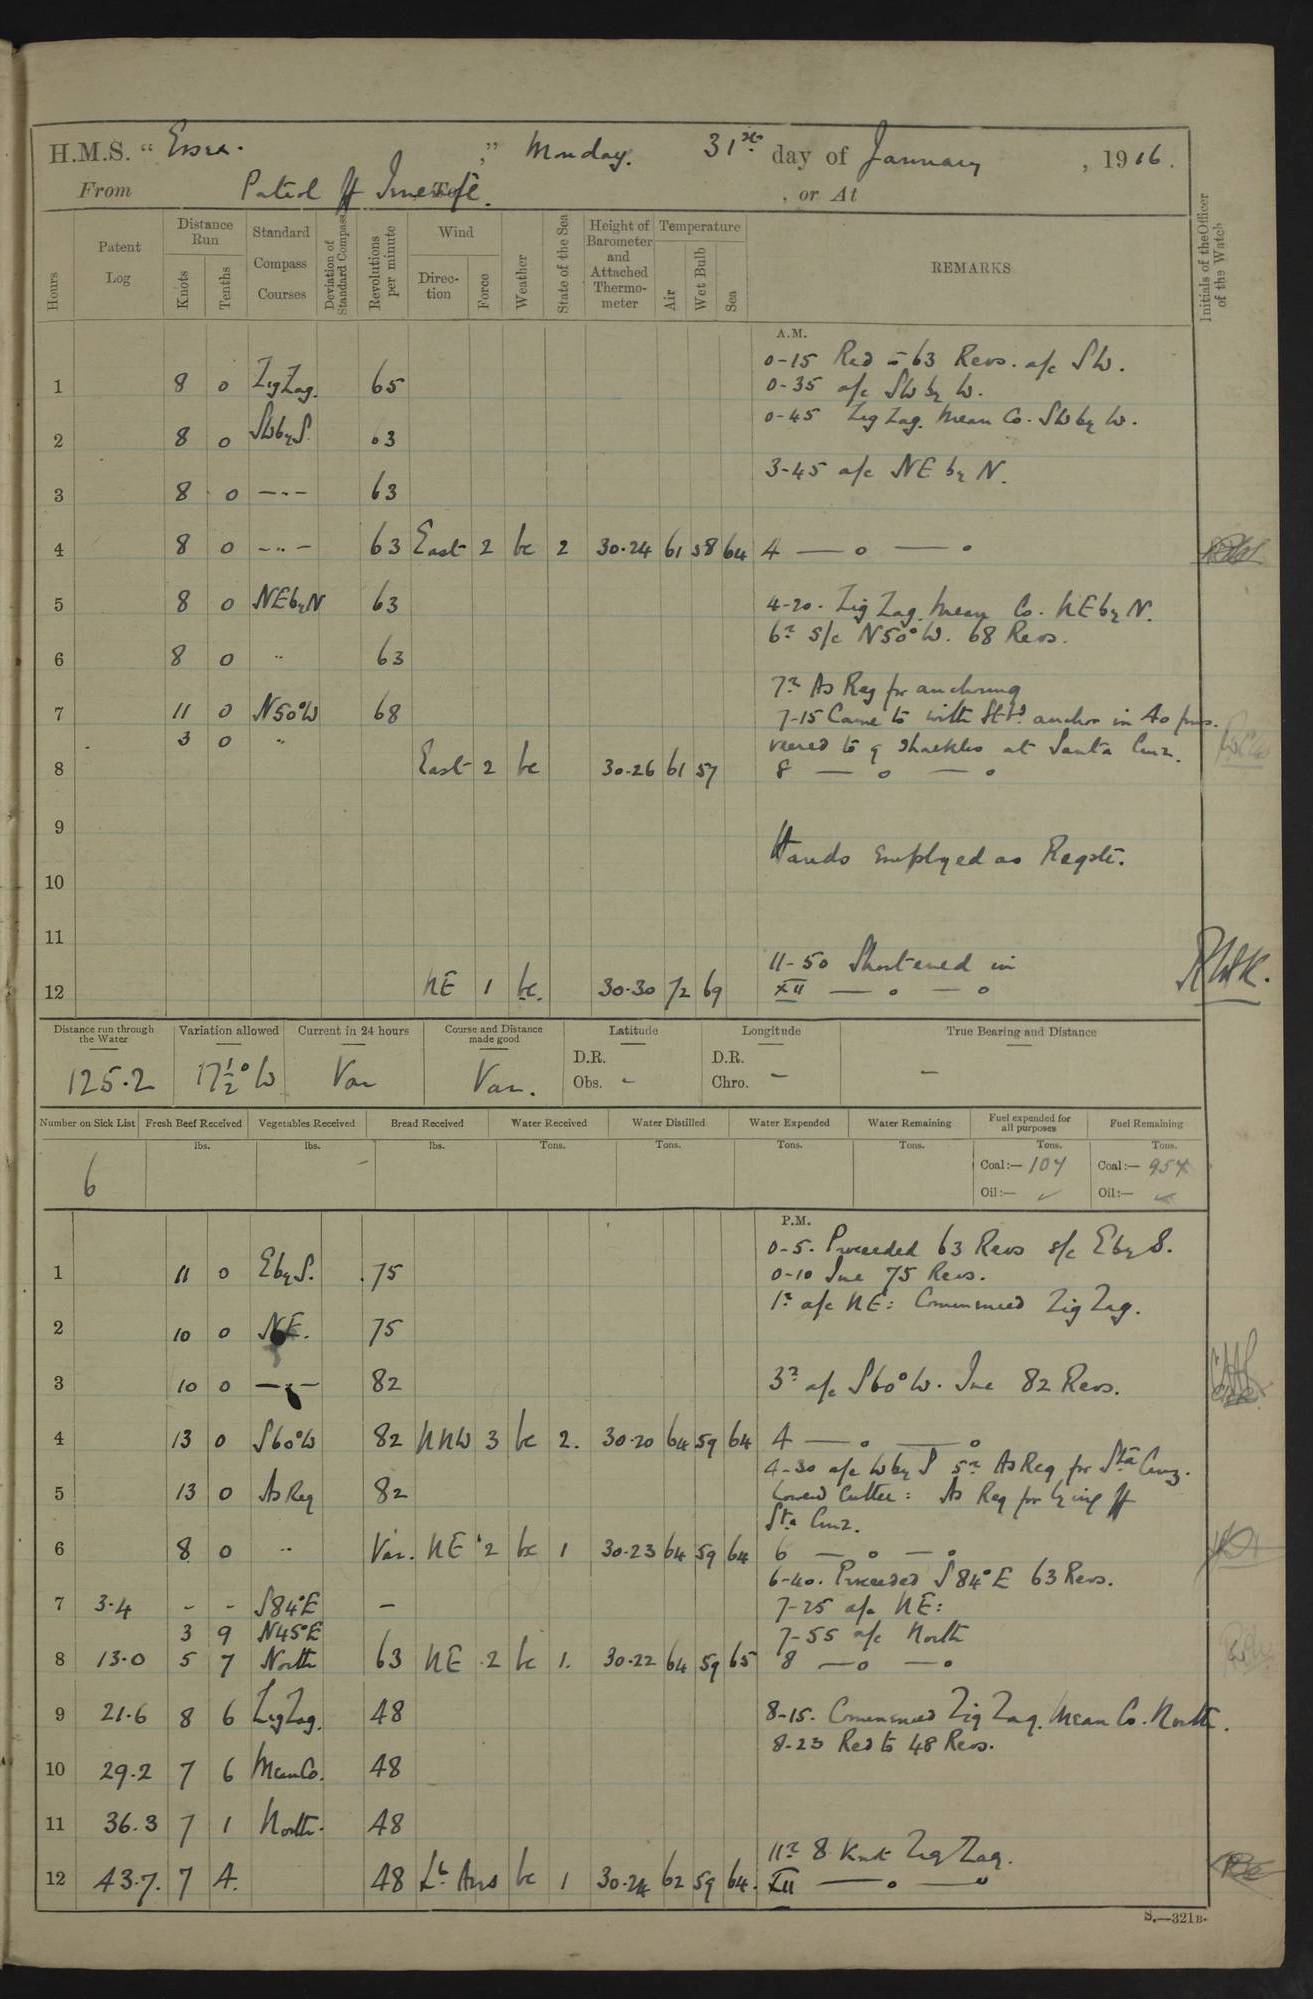 H.M.S. " Essex. ," Monday. 31st day of January , 1916.
From Patrol off Teneriffe. To , or At
Hours
Patent Log
Distance Run
Knots
Tenths
Standard Compass Courses
Deviation of Standard Compass
Revolutions per minute
Wind
Direction
Force
Weather
State of the Sea
Height of Barometer and Attached Thermometer
Temperature
Air
Wet Bulb
Sea
REMARKS
Initials of the Officer of the Watch
A.M.
0-15 Red to 63 Revs. a/c SW.
1 8 0 ZigZag. 65 0-35 a/c SW by W.
0-45 Zig Zag. Mean Co. SW by W.
2 8 0 SWbyS. 63
3-45 a/c NE by N.
3 8 0 -"- 63
4 8 0 -"- 63 East 2 bc 2 30.24 61 58 64 4 — o — o
5 8 0 NEbyN 63 4-20. Zig Zag. Mean Co. NE by N.
6 s/c N50°W. 68 Revs.
6 8 0 " 63
7 As Req for anchoring
7 11 0 N50°W 68 7-15 Came to with Stbd anchor in 40 fms.
3 0 " veered to 9 shackles at Santa Cruz.
8 East 2 bc 30.26 61 57 8 — o — o
9
Hands employed as Reqste.
10
11
11-50 Shortened in
12 NE 1 bc. 30.30 72 69 XII — o — o
Distance run through the Water
Variation allowed
Current in 24 hours
Course and Distance made good
Latitude
Longitude
True Bearing and Distance
125.2 17½°W Var Var. D.R. Obs. - D.R. Chro. - -
Number on Sick List
Fresh Beef Received
Vegetables Received
Bread Received
Water Received
Water Distilled
Water Expended
Water Remaining
Fuel expended for all purposes
Fuel Remaining
lbs. lbs. lbs. Tons. Tons. Tons. Tons. Tons. Tons.
6 - Coal:— 107 Coal:— 954
Oil:— ✓ Oil:— ✓
P.M.
0-5. Proceeded 63 Revs s/c EbyS.
1 11 0 EbyS. 75 0-10 Inc 75 Revs.
1 a/c NE: Commenced Zig Zag.
2 10 0 NE. 75
3 10 0 -"- 82 3 a/c S60°W. Inc 82 Revs.
4 13 0 S60°W 82 NNW 3 bc 2. 30.20 64 59 64 4 — o — o
4-30 a/c W by S 5 As Req for Sta Cruz.
5 13 0 As Req 82 Lowered Cutter: As Req for lying off
Sta Cruz.
6 8 0 " Var. NE 2 bc 1 30.23 64 59 64 6 — o — o
6-40. Proceeded S84°E 63 Revs.
7 3.4 - - S84°E - 7-25 a/c NE:
3 9 N45°E 7-55 a/c North
8 13.0 5 7 North 63 NE 2 bc 1. 30.22 64 59 65 8 — o — o
9 21.6 8 6 ZigZag. 48 8-15. Commenced Zig Zag. Mean Co. North.
8-23 Red to 48 Revs.
10 29.2 7 6 Mean Co. 48
11 36.3 7 1 North. 48
11 8 Knot Zig Zag.
12 43.7. 7 4. 48 Lt Airs bc 1 30.24 62 59 64. XII — o — o
S.—321B.